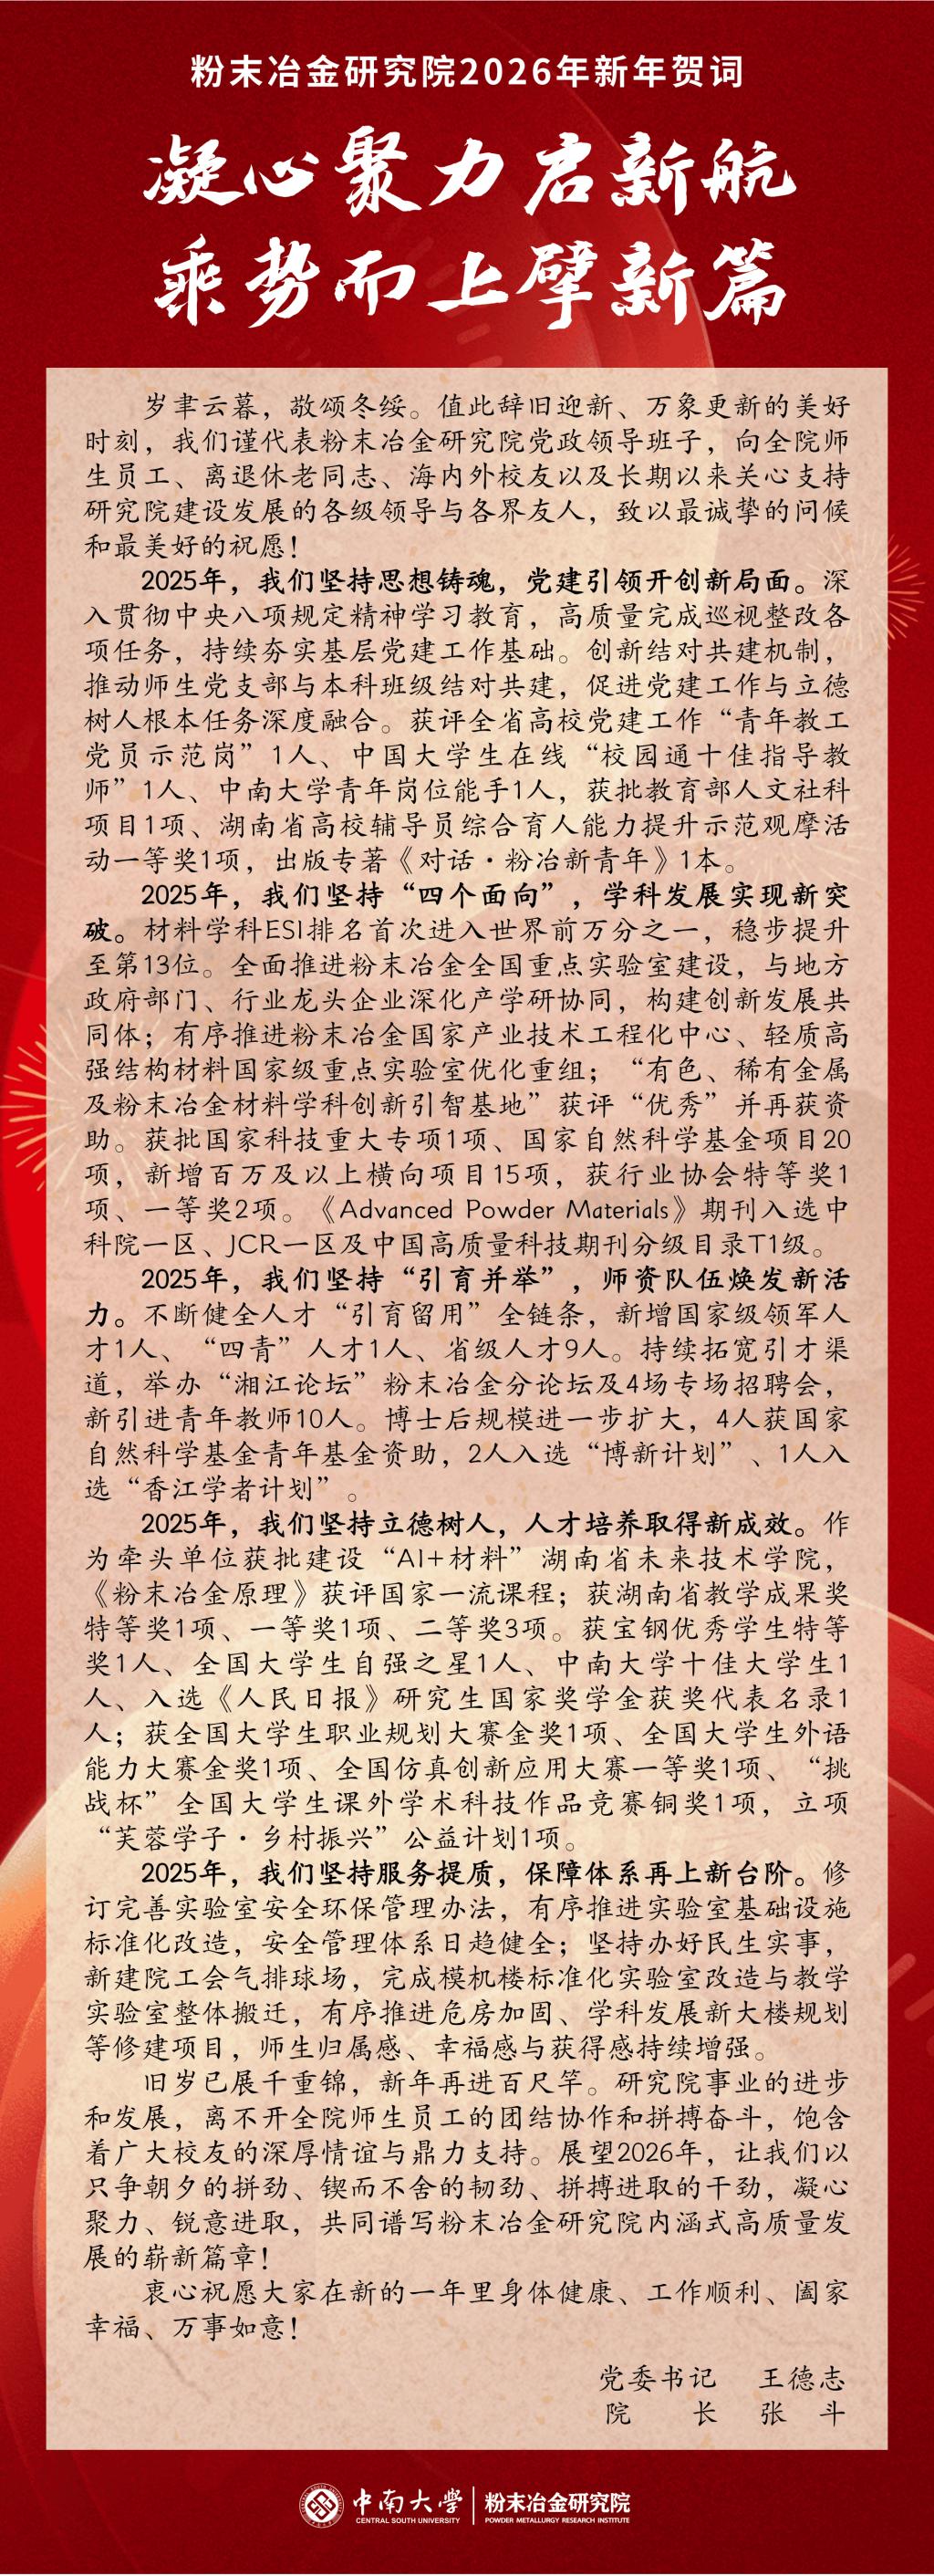 粉末冶金研究院2026年新年贺词
凝心聚力启新航
乘势而上擘新篇
岁聿云暮，敬颂冬绥。值此辞旧迎新、万象更新的美好
时刻，我们谨代表粉末冶金研究院党政领导班子，向全院师
生员工、离退休老同志、海内外校友以及长期以来关心支持
研究院建设发展的各级领导与各界友人，致以最诚挚的问候
和最美好的祝愿！
2025年，我们坚持思想铸魂，党建引领开创新局面。深
入贯彻中央八项规定精神学习教育，高质量完成巡视整改各
项任务，持续夯实基层党建工作基础。创新结对共建机制，
推动师生党支部与本科班级结对共建，促进党建工作与立德
树人根本任务深度融合。获评全省高校党建工作“青年教工
党员示范岗”1人、中国大学生在线“校园通十佳指导教
师”1人、中南大学青年岗位能手1人，获批教育部人文社科
项目1项、湖南省高校辅导员综合育人能力提升示范观摩活
动一等奖1项，出版专著《对话·粉冶新青年》1本。
2025年，我们坚持“四个面向”，学科发展实现新突
破。材料学科ESI排名首次进入世界前万分之一，稳步提升
至第13位。全面推进粉末冶金全国重点实验室建设，与地方
政府部门、行业龙头企业深化产学研协同，构建创新发展共
同体；有序推进粉末冶金国家产业技术工程化中心、轻质高
强结构材料国家级重点实验室优化重组；“有色、稀有金属
及粉末冶金材料学科创新引智基地”获评“优秀”并再获资
助。获批国家科技重大专项1项、国家自然科学基金项目20
项，新增百万及以上横向项目15项，获行业协会特等奖1
项、一等奖2项。《Advanced Powder Materials》期刊入选中
科院一区、JCR一区及中国高质量科技期刊分级目录T1级。
2025年，我们坚持“引育并举”，师资队伍焕发新活
力。不断健全人才“引育留用”全链条，新增国家级领军人
才1人、“四青”人才1人、省级人才9人。持续拓宽引才渠
道，举办“湘江论坛”粉末冶金分论坛及4场专场招聘会，
新引进青年教师10人。博士后规模进一步扩大，4人获国家
自然科学基金青年基金资助，2人入选“博新计划”、1人入
选“香江学者计划”。
2025年，我们坚持立德树人，人才培养取得新成效。作
为牵头单位获批建设“AI+材料”湖南省未来技术学院，
《粉末冶金原理》获评国家一流课程；获湖南省教学成果奖
特等奖1项、一等奖1项、二等奖3项。获宝钢优秀学生特等
奖1人、全国大学生自强之星1人、中南大学十佳大学生1
人、入选《人民日报》研究生国家奖学金获奖代表名录1
人；获全国大学生职业规划大赛金奖1项、全国大学生外语
能力大赛金奖1项、全国仿真创新应用大赛一等奖1项、“挑
战杯”全国大学生课外学术科技作品竞赛铜奖1项，立项
“芙蓉学子·乡村振兴”公益计划1项。
2025年，我们坚持服务提质，保障体系再上新台阶。修
订完善实验室安全环保管理办法，有序推进实验室基础设施
标准化改造，安全管理体系日趋健全；坚持办好民生实事，
新建院工会气排球场，完成模机楼标准化实验室改造与教学
实验室整体搬迁，有序推进危房加固、学科发展新大楼规划
等修建项目，师生归属感、幸福感与获得感持续增强。
旧岁已展千重锦，新年再进百尺竿。研究院事业的进步
和发展，离不开全院师生员工的团结协作和拼搏奋斗，饱含
着广大校友的深厚情谊与鼎力支持。展望2026年，让我们以
只争朝夕的拼劲、锲而不舍的韧劲、拼搏进取的干劲，凝心
聚力、锐意进取，共同谱写粉末冶金研究院内涵式高质量发
展的崭新篇章！
衷心祝愿大家在新的一年里身体健康、工作顺利、阖家
幸福、万事如意！
党委书记 王德志
院 长 张 斗
中南大学 粉末冶金研究院
CENTRAL SOUTH UNIVERSITY POWDER METALLURGY RESEARCH INSTITUTE